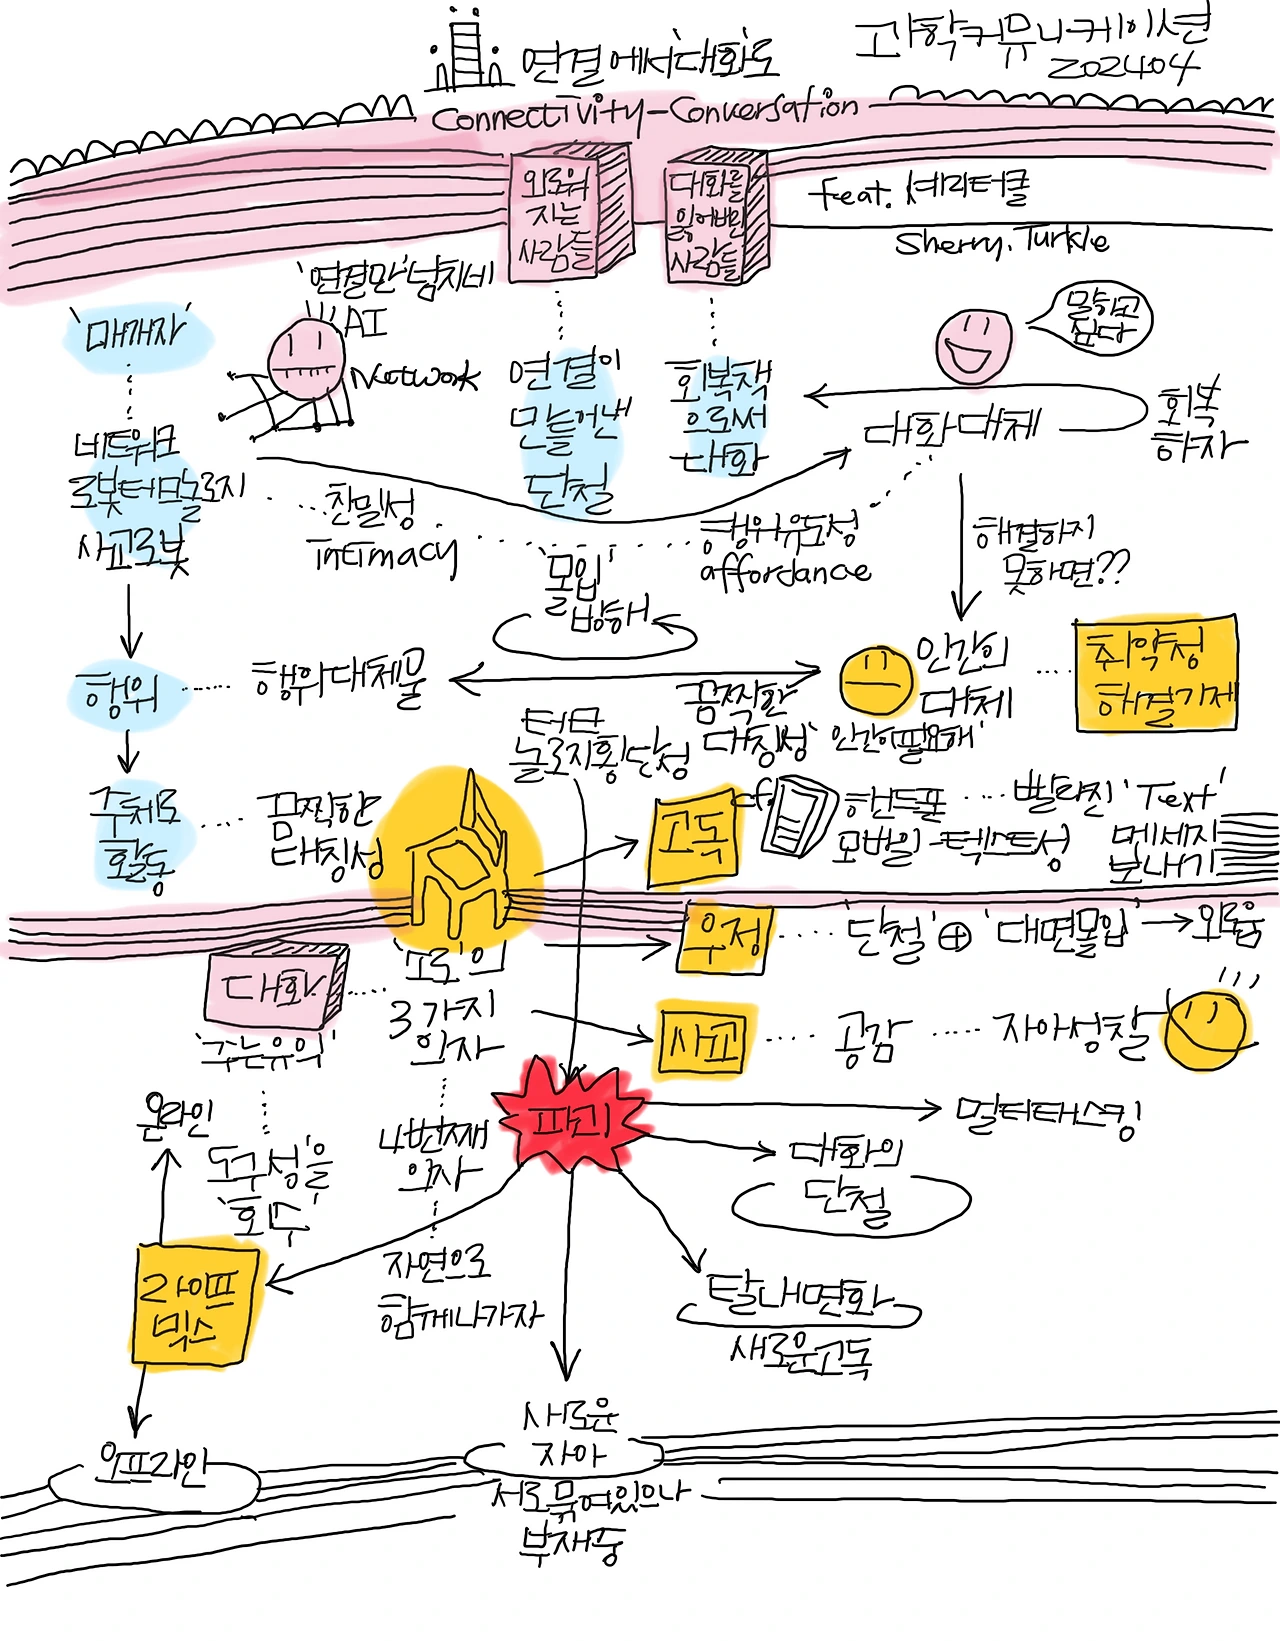 연결에서'대화'로
과학커뮤니케이션
202404
Connectivity-Conversation
외로워
지는
사람들
대화를
잃어버린
사람들
feat. 셰리터클
Sherry. Turkle
'연결만'넘치네
AI
Network
'매개자'
네트워크
로봇테크놀로지
사교로봇
연결이
만들어낸
단절
회복책
으로써
대화
말하고
싶다
대화대체
회복
하자
친밀성
intimacy
'몰입'
방해
행위유도성
affordance
해결하지
못하면??
행위
행위대체물
끔찍한
대칭성
인간의
대체
'인간이필요해'
취약성
해결기제
테크
놀로지횡단성
주체로
활동
끔찍한
대칭성
고독
cf.
핸드폰
모바일-텍스트성
빨라진 'Text'
메세지
보내기
우정
'단절'⊕'대면몰입'→외로움
대화
'주는유익'
'소로'의
3가지
의자
사고
공감
자아성찰
온라인
도구성'을
'회수'
4번째
의자
자연으로
함께나가자
파괴
멀티태스킹
대화의
단절
탈내면화
새로운고독
라이프
믹스
오프라인
새로운
자아
서로묶여있으나
부재중